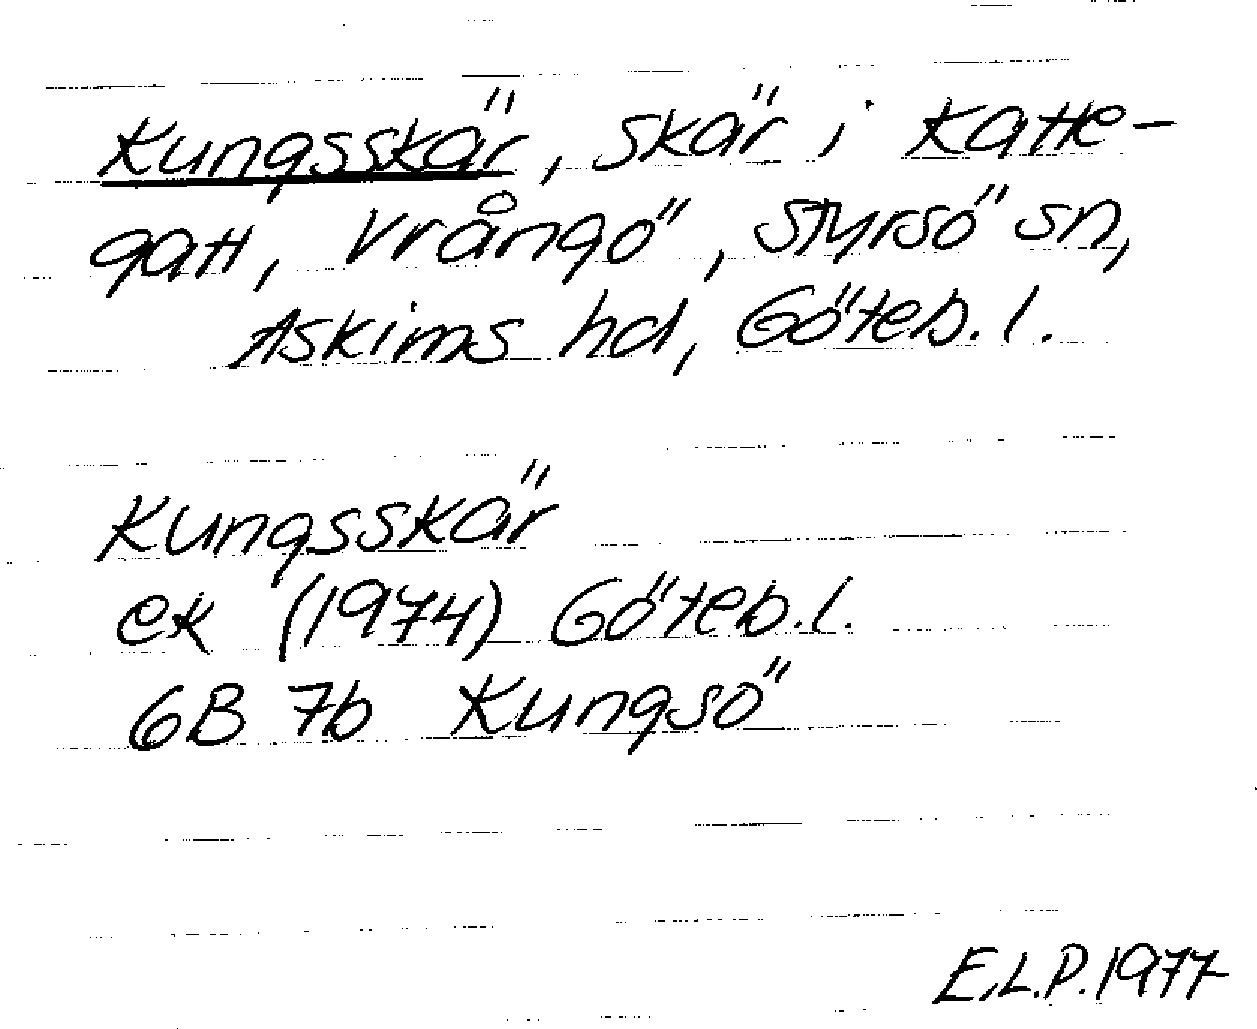 Kungsskär, skär i Katte-
gatt, Vrångö, Styrsö sn,
Askims hd, Göteb. l.
Kungsskär
ek (1974) Göteb. l.
6B 7b Kungsö
E.L.P. 1977